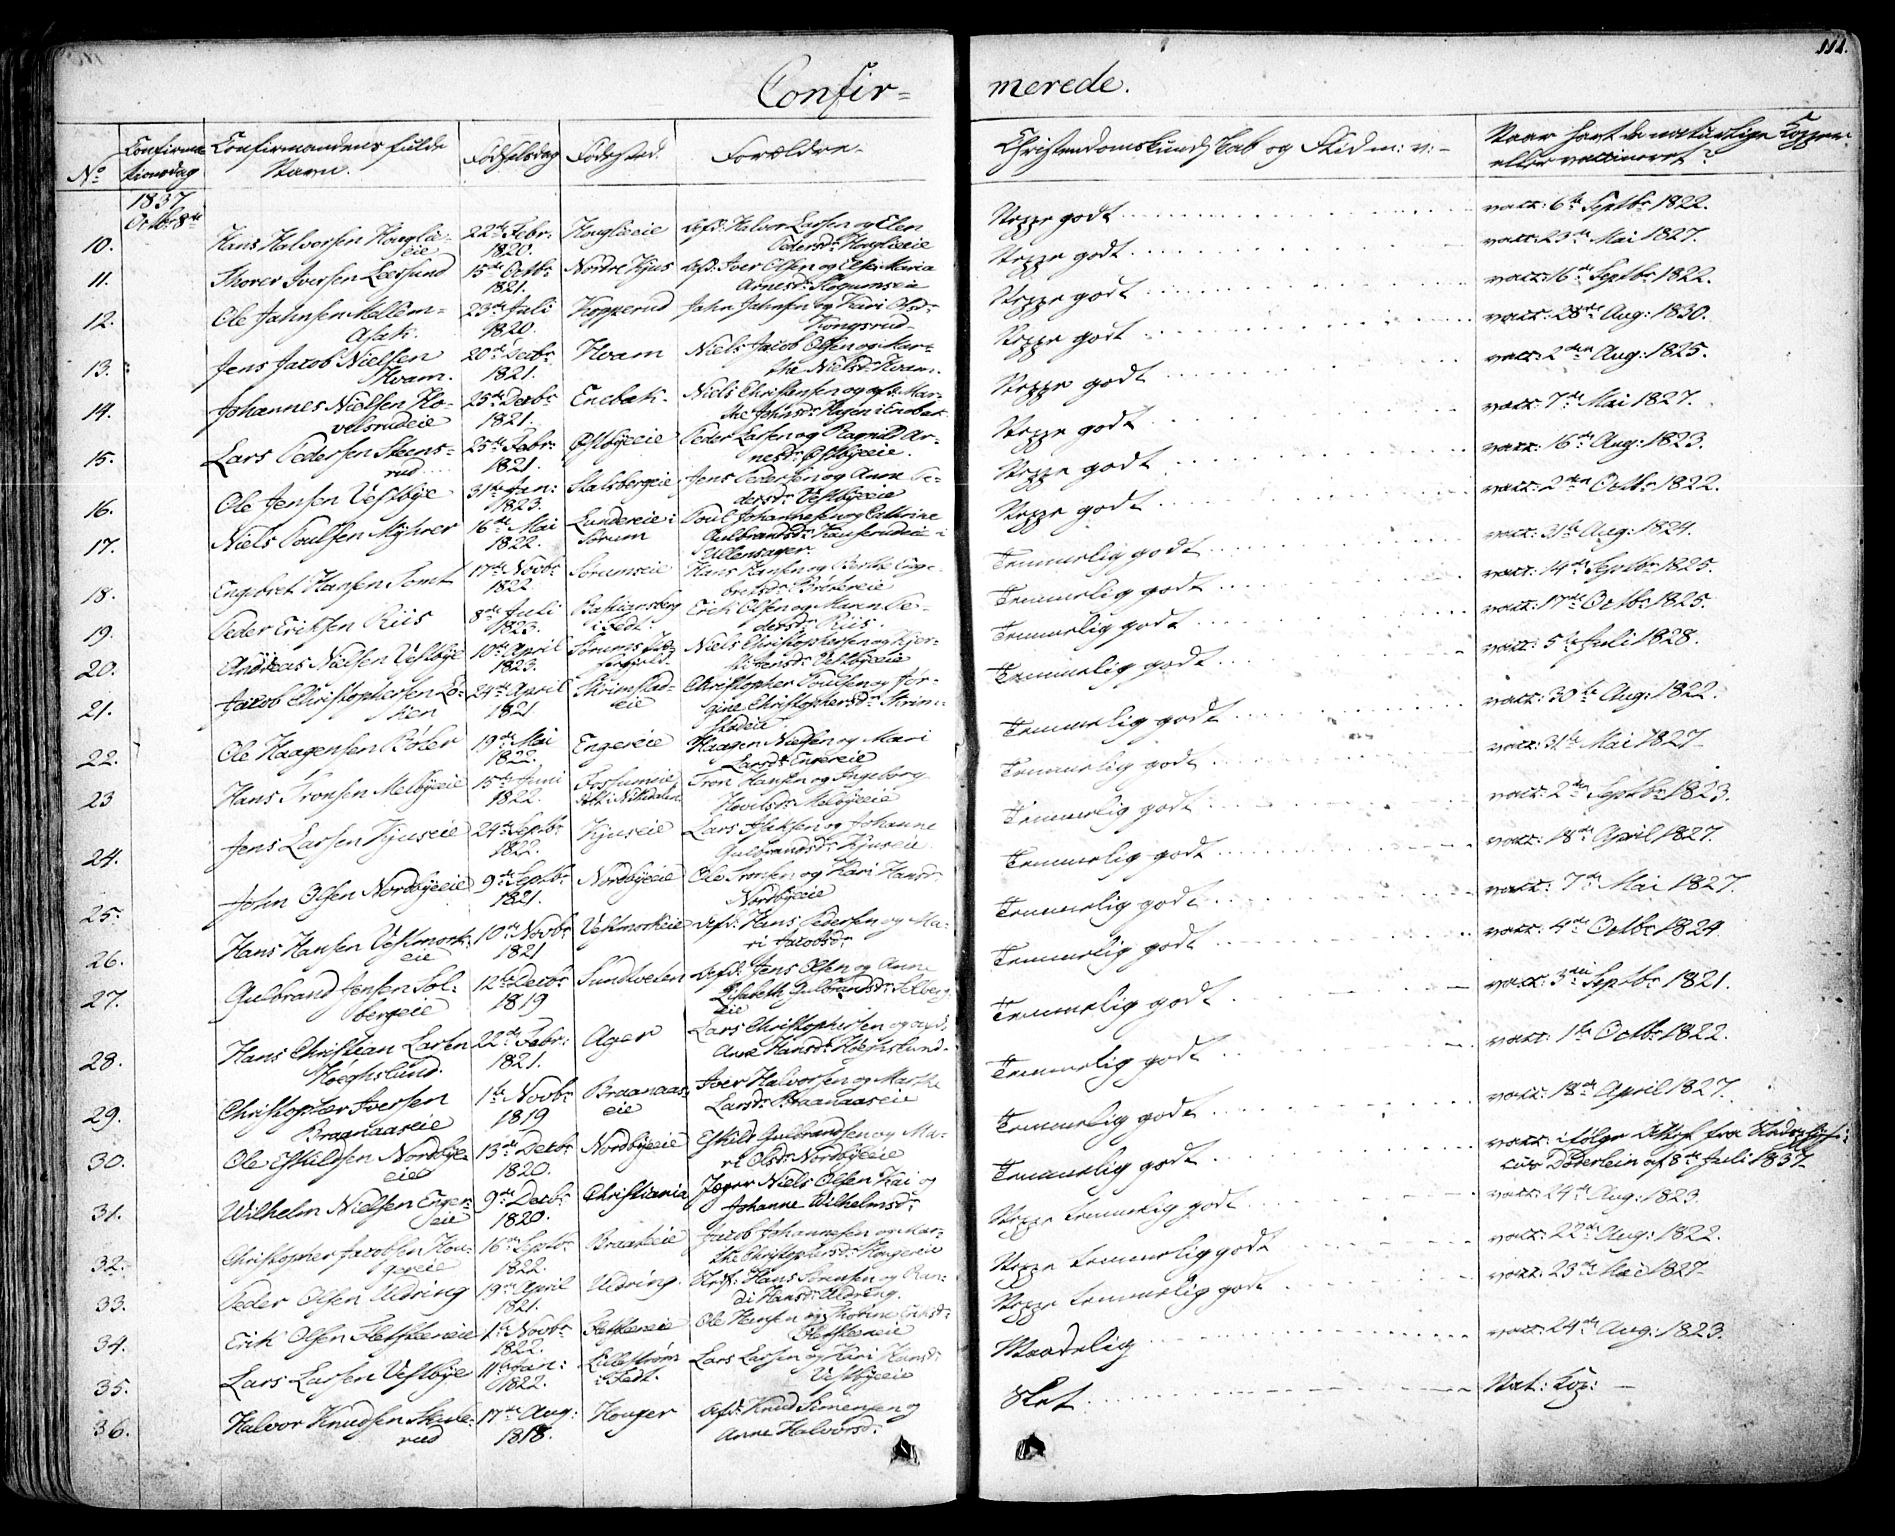 114.
Confir=
merede.
No
Confirma
tionsdag
Confirmandens fulde
Navn.
Fødselsdag
Fødested.
Forældre
Christendomskundskab og Flid m: v:
Naar havt de naturlige Kopper
eller vaccineret?
1837
Octbr 8de
10.
Hans Halvorsen Houglie
eie
22de Febr:
1820.
Houglieeie
Afd: Halvor Larsen og Elen
Pedersd: Houglieeie
Meget godt
vacc: 6te Septbr 1822.
11.
Thorer Iversen Leersund
15de Octbr
1821.
Nordre Kjus
Afd: Iver Olsen og Else Maria
Arnesd:
Meget godt
vacc: 23de Mai 1827.
12.
Ole Jahnsen Mellem=
Asak.
23de Juli
1820.
Kopperud
Jahn Jahnsen og Kari Olsd:
Kongsrud
Meget godt
vacc: 16de Septbr 1822.
13.
Jens Jacob Nielsen
Hvam.
20de Decbr
1821.
Hvam
Niels Jacob Olsen og Mar=
the Nielsd: Hvam.
Meget godt
vacc: 28de Aug: 1830.
14.
Johannes Nielsen Ho=
velsrudeie
25de Decbr
1821.
Enebak
Niels Christensen og afd: Mar=
the Johnsd: Hagen i Enebak
Meget godt
vacc: 2den Aug: 1825.
15.
Lars Pedersen Steens=
rud
25de Febr:
1821.
Østbyeeie
Peder Larsen og Ragnild Ar=
nesd: Østbyeeie.
Meget godt
vacc: 7de Mai 1827.
16.
Ole Jensen Vestbye
31te Jan:
1823.
Stalsbergeie
Jens Pedersen og Anne Pe=
dersd: Vestbyeeie
Meget godt
vacc: 16de Aug: 1823.
17.
Niels Poulsen Myhrer
16de Mai
1822.
Lundereie i
Sørum
Poul Johannesen og Cathrine
Gulbrandsd: i
Ullensager
Meget godt
vacc: 2den Octbr 1822.
18.
Engebret Hansen Tomt
17de Novbr
1822.
Sørumseie
Hans Hansen og Berthe Enge=
bretsd:
Temmelig godt
vacc: 31te Aug: 1824.
19.
Peder Eriksen Riis
8de Juli
1823.
i Fedt.
Erik Olsen og Maren Pe=
dersd: Riis.
Temmelig godt
vacc: 14de Septbr 1825.
20.
Andreas Nielsen Vestbye
10de April
1823.
Niels Christophersen og
Vestbyeeie
Temmelig godt
vacc: 17de Octbr 1825.
21.
Jacob Christophersen Lø=
sien
24de April
1821
Skrimstad=
eie
Christopher Poulsen og Jør=
gine Christophersd: Skrim=
stadeie
Temmelig godt
vacc: 5te Juli 1828.
22.
Ole Haagensen Røler
19de Mai
1822.
Engereie
Haagen Nielsen og Mari
Larsd: Engereie
Temmelig godt
vacc: 30te Aug: 1822.
23
Hans Tronsen Melbyeeie
15de Juni
1822.
Tron Hansen og Ingeborg
Melbyeeie
Temmelig godt
vacc: 31te Mai 1827
24.
Jens Larsen Kjuseie
24de Septbr
1822.
Kjuseie
Lars Islaksen og Johanne
Gulbrandsd: Kjuseie.
Temmelig godt
vacc: 2den Septbr 1823.
25.
John Olsen Nordbyeeie
9de Septbr
1821.
Nordbyeeie
Ole Tronsen og Kari Hansd:
Nordbyeeie
Temmelig godt
vacc: 18de April 1827.
26.
Hans Hansen Vestmork=
eie
10de Novbr
1821
Vestmorkeie
Afd: Hans Pedersen og Ma=
ri Jacobsd:
Temmelig godt
vacc: 7de Mai 1827.
27.
Gulbrand Jensen Sol=
bergeie
12te Decbr
1819
Afd: Jens Olsen og Anne
Elisabeth Gulbrandsd: Solberg
eie
Temmelig godt
vacc: 4de Octbr 1824.
28.
Hans Christian Larsen
Høeghslund.
22de Febr:
1821.
Ager
Lars Christophersen og afd:
Anne Hansd: Høeghslund.
Temmelig godt
vacc: 3die Septbr 1821.
29.
Christopher Iversen
Braanaaseie
1te Novbr
1819
Braanaas=
eie
Iver Halvorsen og Marthe
Larsd: Braanaaseie
Temmelig godt
vacc: 1te Octbr 1822.
30.
Ole Eskildsen Nordbye
eie
13de Decbr
1820.
Nordbyeeie
Eskild Gulbrandsen og Ma=
ri Olsd: Nordbyeeie
Temmelig godt
vacc: 18de April 1827.
31.
Wilhelm Nielsen Enger=
eie
9de Decbr
1820.
Christiania
Jæger Niels Olsen Kai og
Johanne Wilhelmsd:
Temmelig godt
vacc: ifølge Attest fra
Döderlein af 8de Juli 1837
32.
Christopher Jacobsen Hou=
gereie
16de Septbr
1822.
Braateeie
Jacob Johannesen og Mar=
the Christophersd: Hougereie
Meget temmelig godt
vacc: 24de Aug: 1823.
33.
Peder Olsen Uldring
19de April
1821.
Uldring.
Hans Sørensen og Ran=
di Hansd: Uldreng.
Meget temmelig godt
vacc: 22de Aug: 1822.
34.
Erik Olsen
1te Novbr
1822.
Ole Hansen og
Meget temmelig godt
vacc: 23de Mai 1827
35.
Lars Larsen Vestbye
11te Jan:
1822.
Lillestrøm
i Fedt.
Lars Larsen og Kari Hansd:
Vestbyeeie
Maadelig
vacc: 24de Aug: 1823.
36.
Halvor Knudsen Skule=
rud
17de Aug:
1818.
Houger
Afd: Knud Simensen og
Anne Halvorsd:
Slet
Nat: Kop: